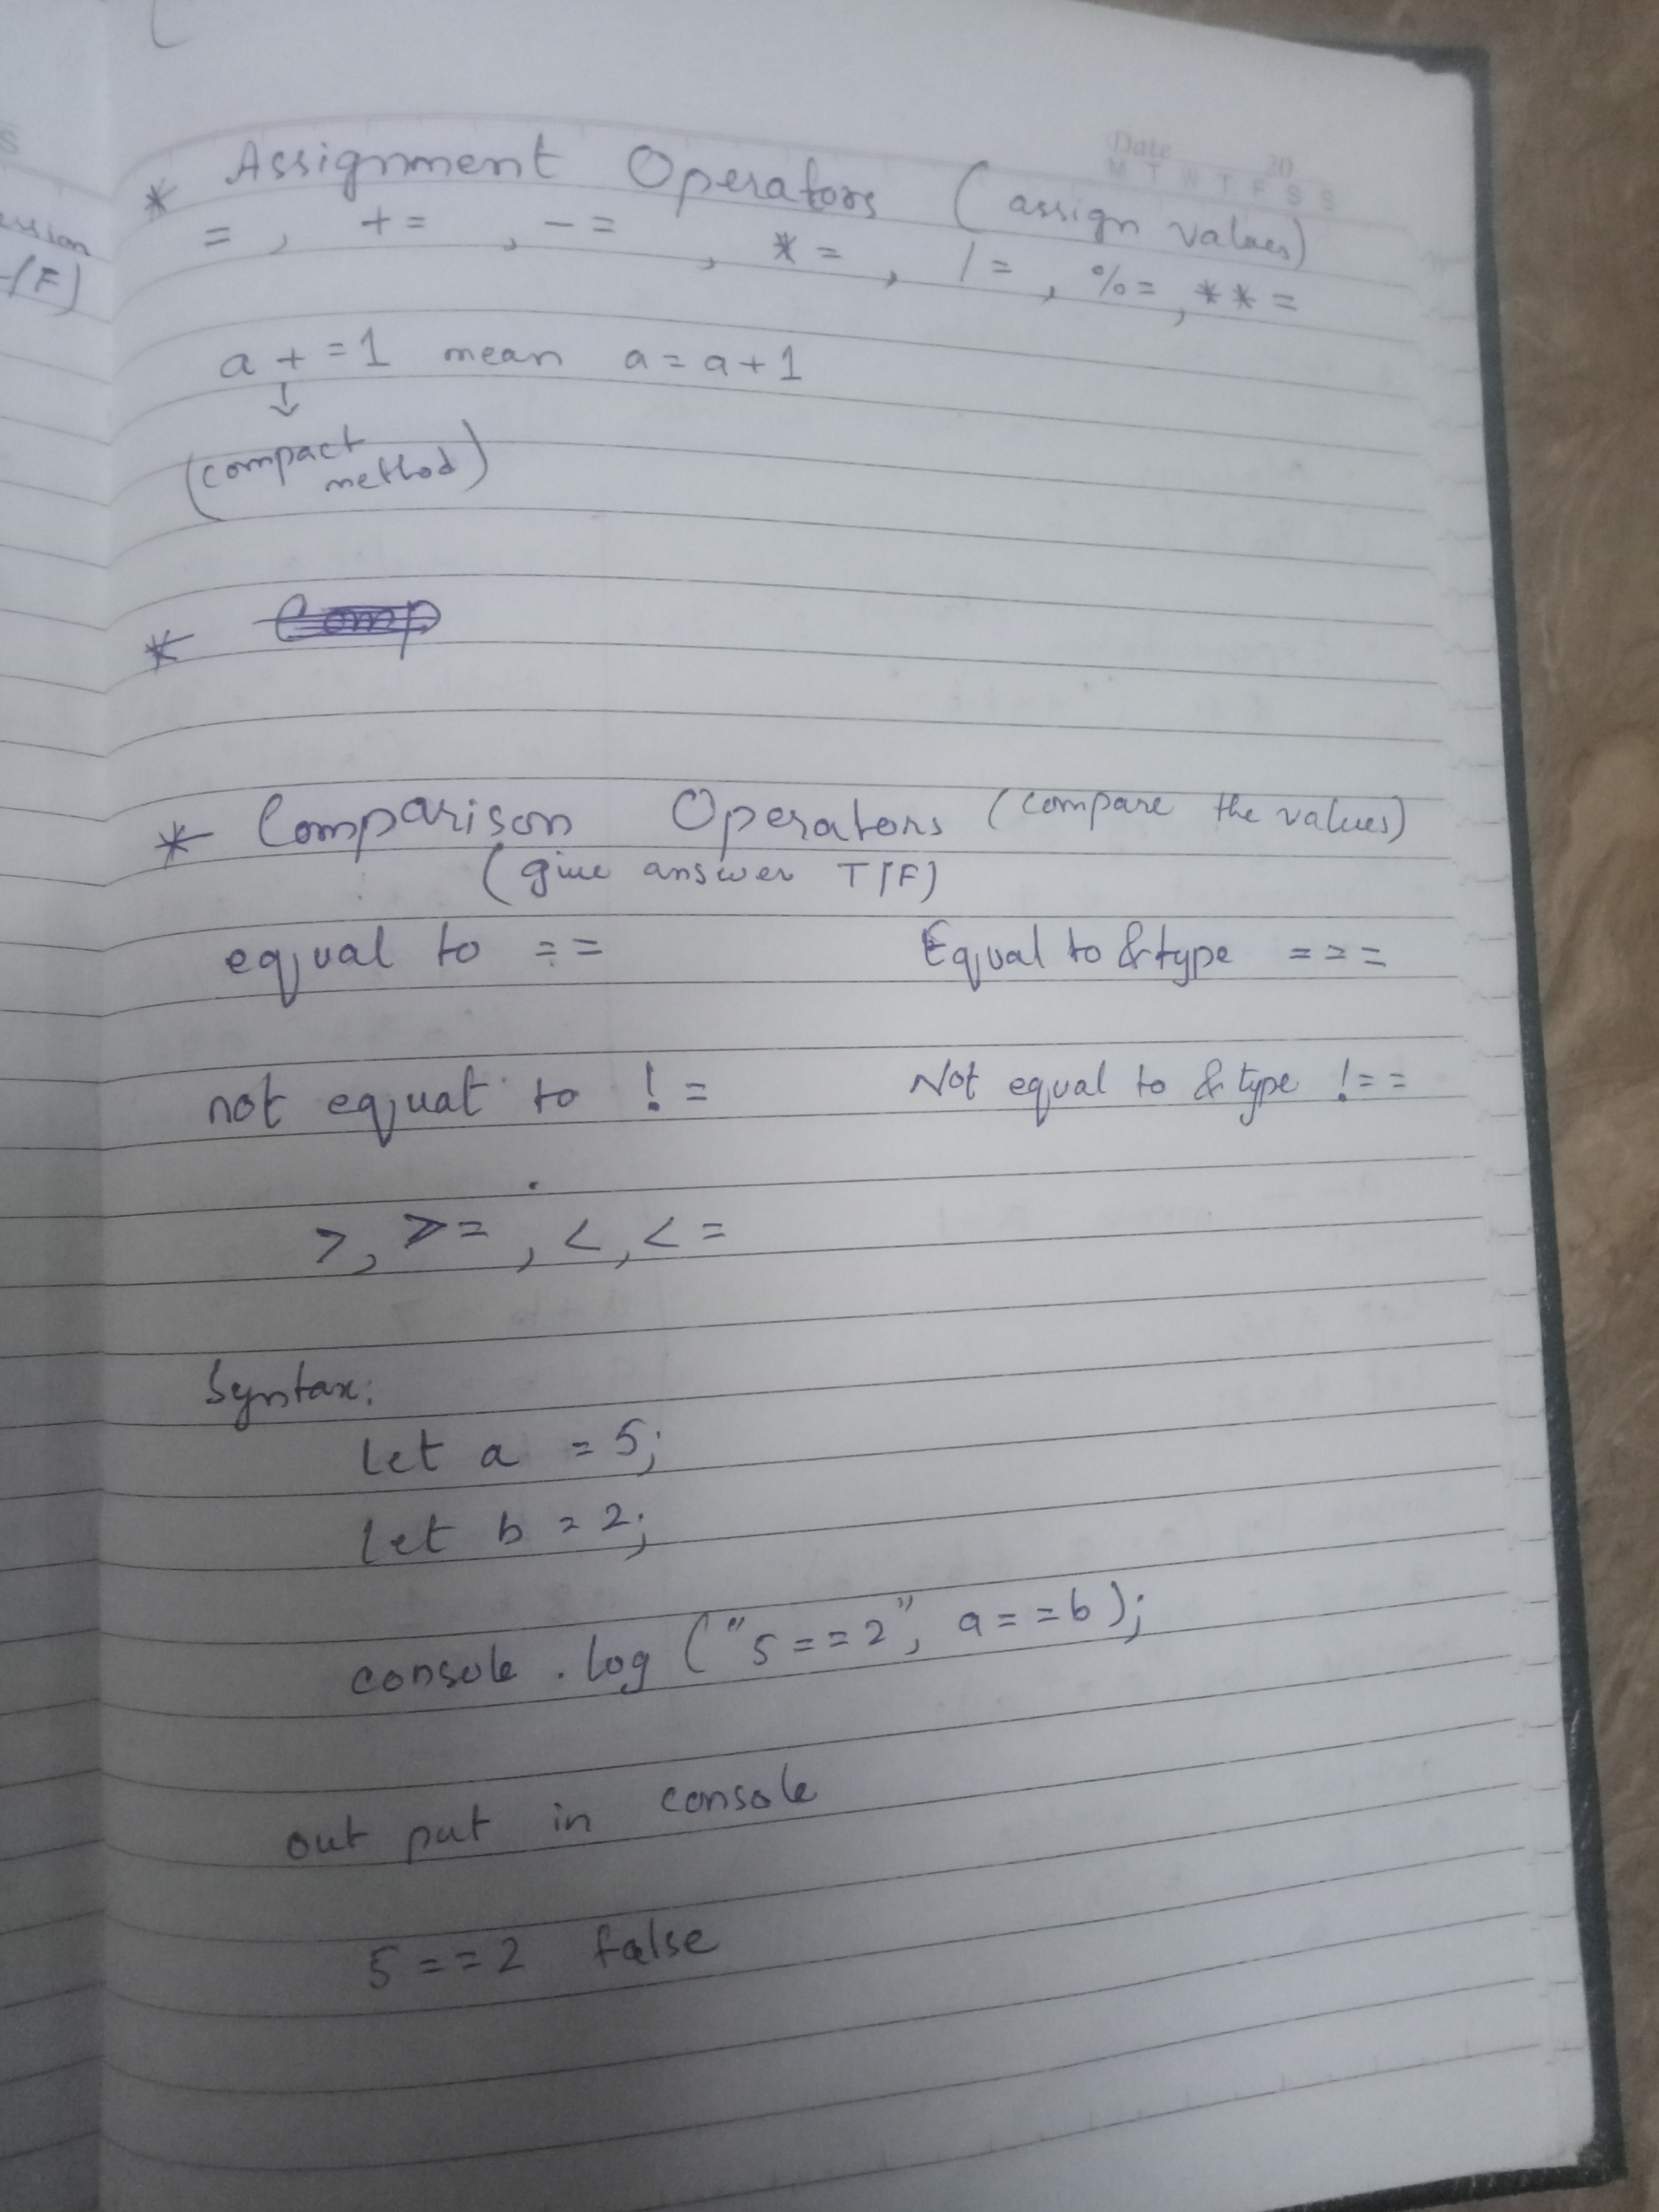 Date 20
M T W T F S S
* Assignment Operators (assign values)
= , += , -= , *= , /= , %= , **=
a += 1 mean a = a + 1
↓
(compact
method)
*
* Comparison Operators (compare the values)
(give answer T/F)
equal to == Equal to & type ===
not equat to != Not equal to & type !==
>, >= , <, <=
Syntax:
let a = 5;
let b = 2;
console . log ("5 == 2", a == b);
out put in console
5 == 2 false